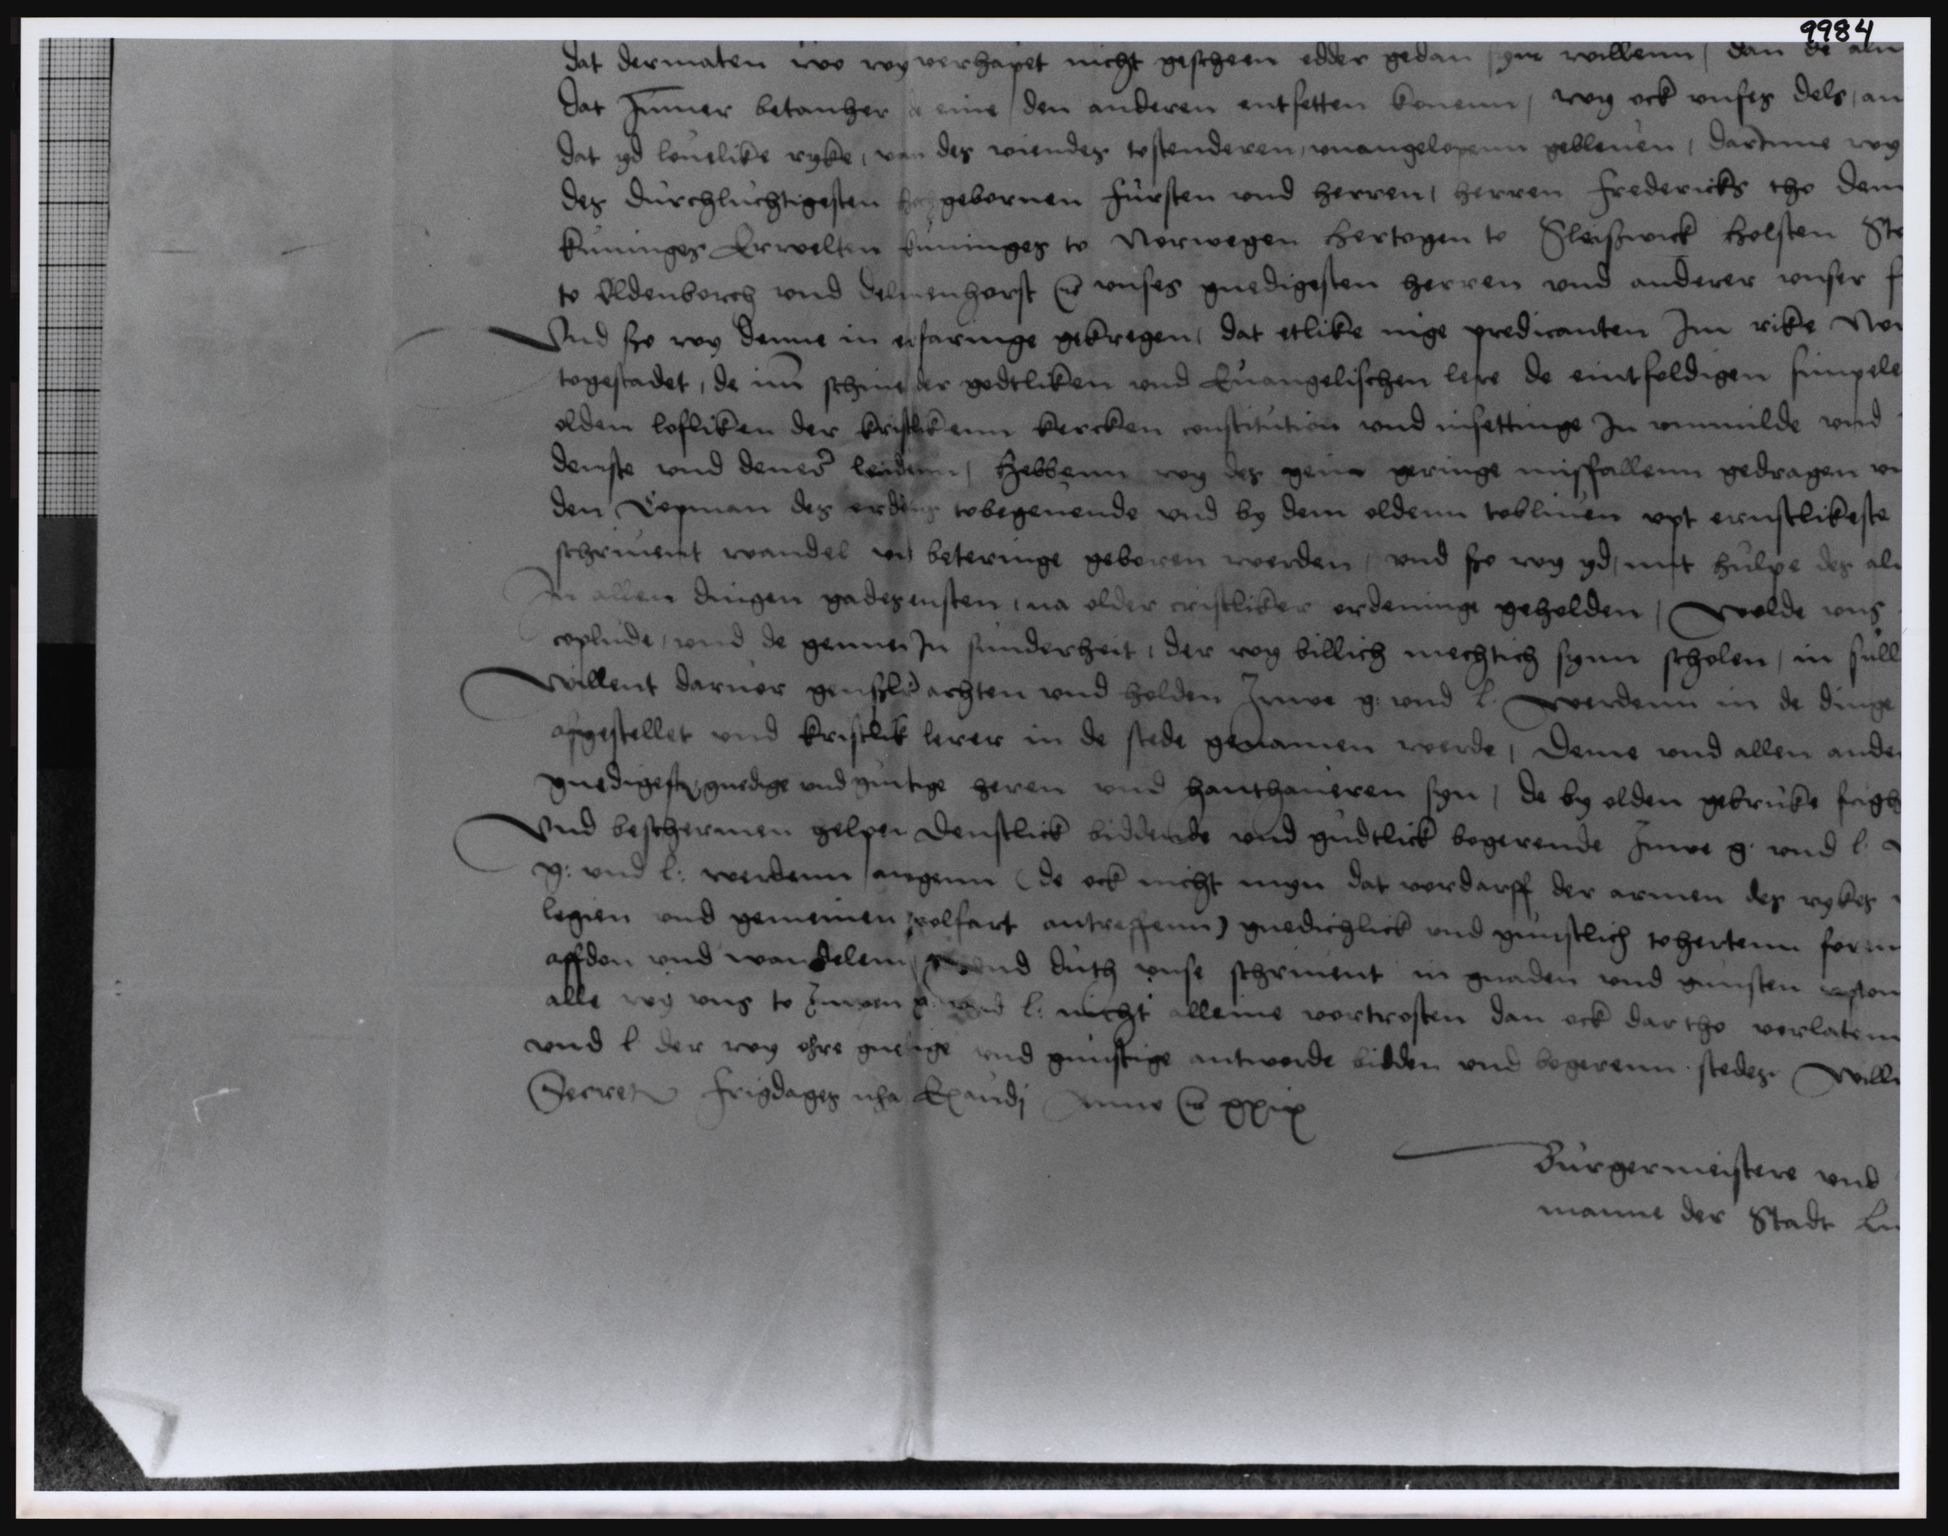 9984
dat dermaten wo wy verhapet nicht gescheen edder gedan syn willenn / dan de
dat Jummer betanher de eine / den anderen entsetten konenn / wy ock vnses dels / an
dat yd louelike ryke / van des viendes tostenderen / vnangelopenn gebleuen / darInne wy
des durchluchtigesten hochgebornen Fursten vnd herren / herren Fredericks tho Den
kuninges Erwelten kuninges to Norwegen hertogen to Sleißwick holsten Sto
to Oldenborch vnd Delmenhorst etc vnses gnedigesten herren vnd anderer vnser f
Vnd szo wy denne in erfaringe gekregen / dat etlike nige predicanten Im rike Nor
togestadet / de im schine der godtliken vnd Euangelischen lere de eintfoldigen simpele
olden lofliken der kristlikenn kercken constitution vnd insettinge In vnmilde vnd
hebbenn wy des gein geringe missfallenn gedragen
den Copman des tobegenende vnd by dem oldenn tobliuen vpt ernstlikeste
schriuent wandel vnd beteringe geboren werden / vnd szo wy yd / mit hulpe des al
In allen dingen gadesensten / na older cristliker ordeninge geholden / Wolde vns
coplude / vnd de gennen In sunderheit / der wy billich mechtich synn scholen / in sull
Willent daruor achten vnd holden Juwe g: vnd l. werdenn in de dinge
afgestellet vnd kristlik lerer in de stede genamen werde / Deme vnd allen ander
gnedigeste, gnedige vnd gunstige heren vnd hanthaueren syn / de by olden gebruke
Vnd beschermen helpen Denstlick biddende vnd gudtlick begerende Juwe g: vnd l:
g: vnd l: werdenn angenn (de ock nicht myn dat vordarff der armen des rykes
legien vnd gemeinen wolfart antreffenn) gnedichlick vnd gunstlich tohertenn
affdon vnd wandelenn vnd duth vnse schriuent in gnaden vnd gunsten
alle wy vns to Juwen g: vnd l: nicht alleine vortrosten dan ock dartho vorlaten
vnd l der wy ohre gnedige vnd gunstige antworde bidden vnd begerenn. stedes. Will
Secret Frigdages nha Exaudj Anno etc xxix
Burgermeistere vnd
manne der Stadt Lu